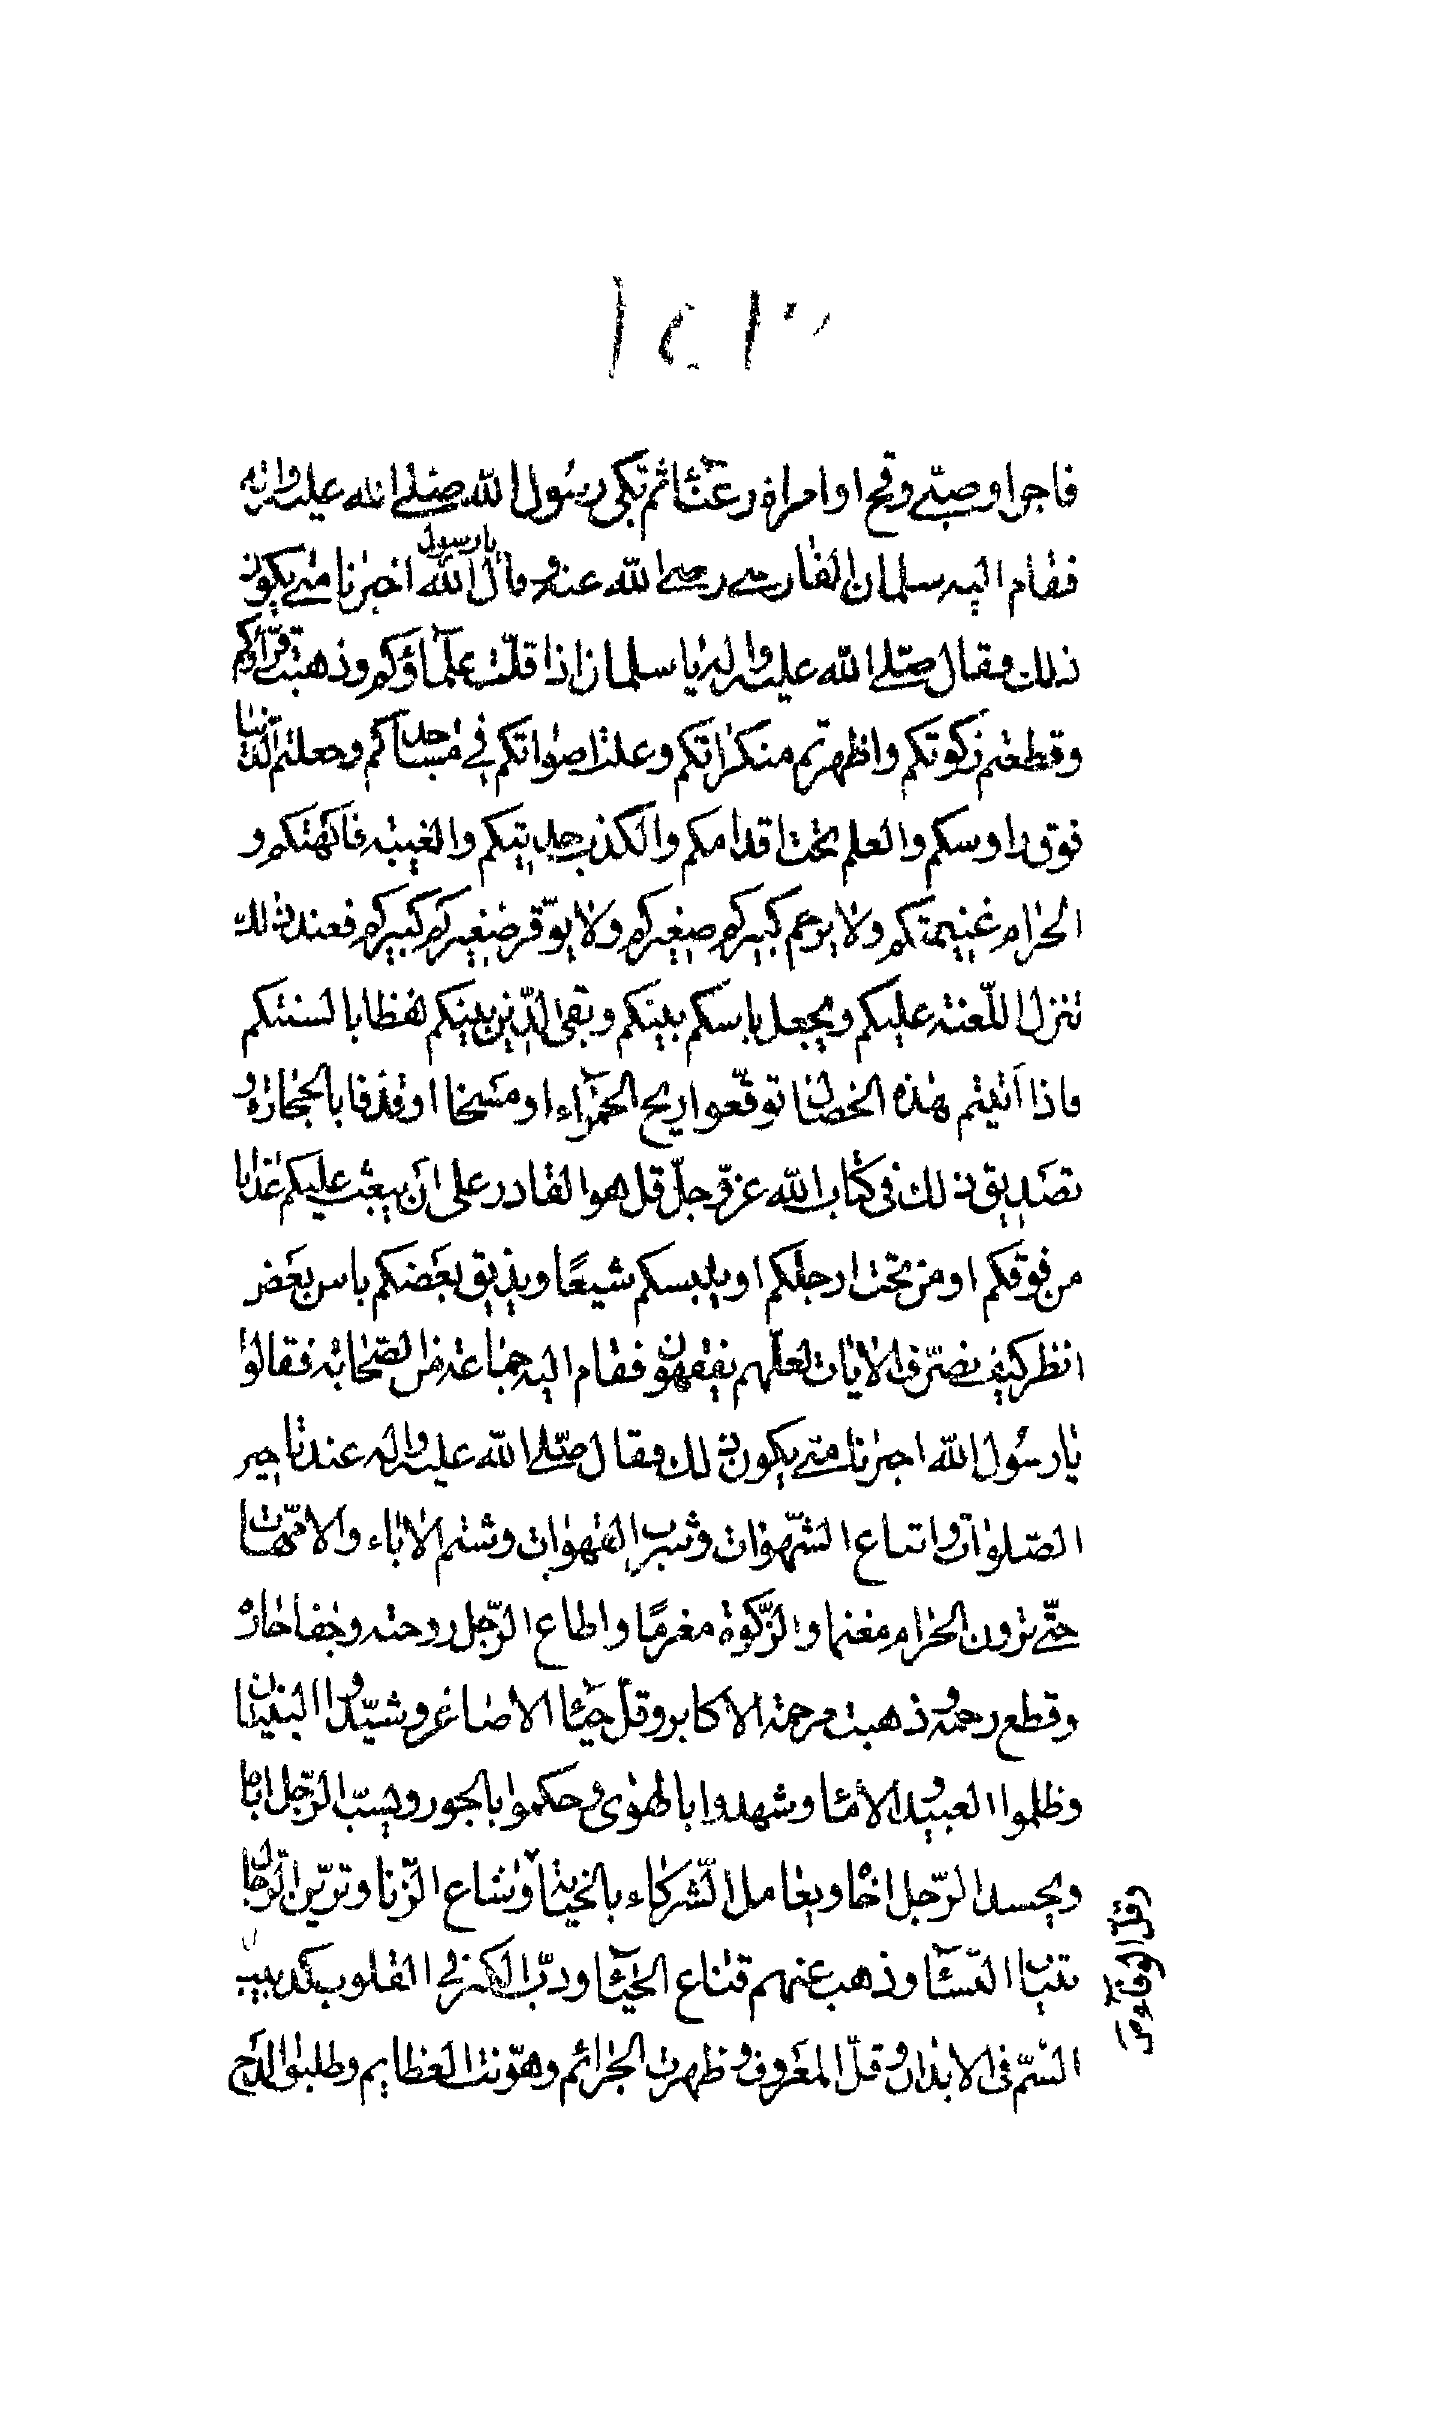 فاجرا وصبي وقح او امراة رعناء ثم بكى رسول الله صلى الله عليه واله
فقام اليه سلمان الفارسي رضي الله عنه وقال يا رسول الله اخبرنا متى يكون
ذلك فقال صلى الله عليه واله يا سلمان اذا قلت علماؤكم وذهبت قراؤكم
وقطعتم زكوتكم واظهرتم منكراتكم وعلت اصواتكم في مساجدكم وجعلتم الدنيا
فوق راوسكم والعلم تحت اقدامكم والكذب حديثكم والغيبة فاكهتكم و
الحرام غنيمتكم ولا يرحم كبيركم صغيركم ولا يوقر صغيركم كبيركم فعند ذلك
تنزل اللعنة عليكم ويجعل باسكم بينكم وبقي الدين بينكم لفظا بالسنتكم
فاذا اتيتم هذه الخصال توقعوا ريح الحمراء او مسخا او قذفا بالحجارة و
تصديق ذلك في كتاب الله عز وجل قل هو القادر على ان يبعث عليكم عذابا
من فوقكم او من تحت ارجلكم او يلبسكم شيعًا ويذيق بعضكم باس بعض
انظر كيف نصرف الايات لعلهم يفقهون فقام اليه جماعة من الصحابة فقالوا
يا رسول الله اخبرنا متى يكون ذلك فقال صلى الله عليه واله عند تاخير
الصلوات واتباع الشهوات وشرب القهوات وشتم الاباء والامهات
حتى ترون الحرام مغنما والزكوة مغرمًا واطاع الرجل زوجته وجفا جاره
وقطع رحمه وذهبت رحمة الاكابر وقل حياء الاصاغر وشيدوا البنيان
وظلموا العبيد والاماء وشهدوا بالهوى وحكموا بالجور ويسب الرجل اباه
ويحسد الرجل اخاه ويعامل الشركاء بالخيانة وشاع الزنا وتزين الرجال
بثياب النساء وذهب عنهم قناع الحياء ودب الكبر في القلوب كدبيب
السم في الابدان وقل المعروف وظهرت الجرائم وهونت العظايم وطلبوا المدح
وقل الوفاء